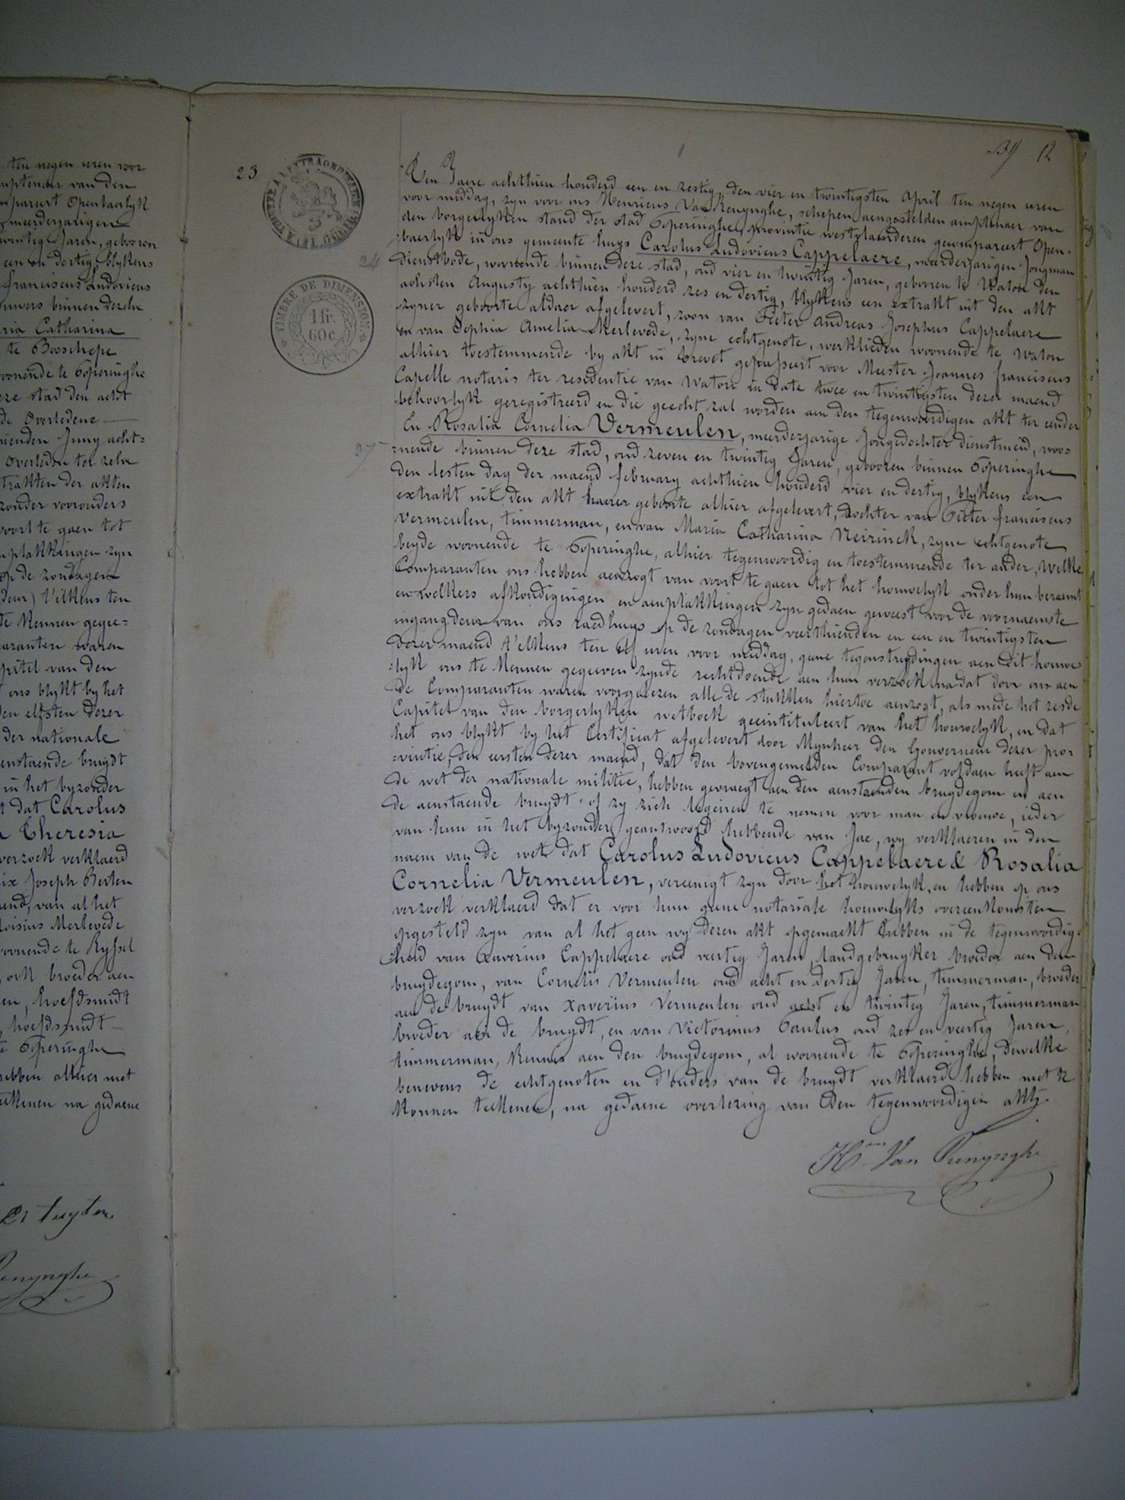 ten negen uren voor
amptenaer van den
gecompareert Openbaerlyk
meerderjarigen
twintig Jaren, geboren
een en dertig, blykens
franciscus Ludovicus
binnen dezelve
Maria Catharina
te Boeschepe
woonende te Poperinghe
deze stad den acht
overledene
Juny acht-
overleden tot zelve
extrakten der akten
zonder voorouders
voort te gaen tot
aenplakkingen zyn
op de zondagen
deur) t'elkens ten
te Kennen gegee-
Comparanten waren
Capitel van den
ons blykt by het
den elfsten dezer
der nationale
aenstaende bruydt
in het byzonder
dat Carolus
Theresia
verzoek verklaerd
Joseph Berten
van al het
Aloisius Merlevede
woonende te Ryssel
ook broeder aen
hoefdsmidt
hoefdsmidt
te Poperinghe
hebben alhier met
teekenen na gedaene
23
39 12
TIMBRE DE DIMENSION
1 fr.
60 c.
Ten Jaere achthien honderd een en zestig, den vier en twintigsten April ten negen uren
voor middag, zyn voor ons Henricus Van Renynghe, schepen aengestelden amptenaer van
den borgerlyken stand der stad Poperinghe, provintie westvlaenderen gecompareert Open-
baerlyk in ons gemeente huys Carolus Ludovicus Cappelaere, meerderjarigen Jongman
Dienstbode, woonende binnen deze stad, oud vier en twintig Jaren, geboren te Watou den
achsten Augusty achthien honderd zes en dertig, blykens een extrakt uit den akt
zyner geboorte aldaer afgelevert, zoon van Pieter Andreas Josephus Cappelaere
en van Sophia Amelia Merlevede, zyne echtgenote, werklieden woonende te Watou
alhier toestemmende by akt in brevet gepasseert voor Meester Joannes franciscus
Capelle notaris ter residentie van Watou in date twee en twintigsten dezer maend
behoorlyk geregistreerd en die geecht zal worden aen den tegenwoordigen akt ter eender
En Rosalia Cornelia Vermeulen, meerderjarige Jongedochter dienstmeid, woo-
nende binnen deze stad, oud zeven en twintig Jaren, geboren binnen Poperinghe
den lesten dag der maend february achthien honderd vier en dertig, blykens een
extrakt uit den akt haerer geboorte alhier afgelevert, dochter van Pieter franciscus
Vermeulen, timmerman, en van Maria Catharina Neirinck, zyne echtgenote
beyde woonende te Poperinghe, alhier tegenwoordig en toestemmende ter ander, Welke
Comparanten ons hebben aenzogt van voort te gaen tot het houwelyk onder hun beraemt
en welkers afkondigingen en aenplakkingen zyn gedaen geweest voor de voornaemste
ingang deur van ons raedhuys op de zondagen veerthienden en een en twintigsten
dezer maend t'elkens ten elf uren voor middag, geene tegenstrydingen aen dit houwe-
lyk ons te kennen gegeeven zynde rechtdoende aen hun verzoek nadat door ons aen
de Comparanten waren voorgelezen alle de stukken hiertoe aenzogt, als mede het zesde
Capitel van den borgerlyken wetboek geeintituleert van het houwelyk, en dat
het ons blykt by het Certificat afgelevert door Mynheer den Gouverneur dezer pro-
vintie, den eersten dezer maend, dat den bovengemelden Comparant voldaen heeft aen
de wet der nationale militie, hebben gevraegt aen den aenstaenden bruydegom en aen
de aenstaende bruydt of zy zich begeiren te nemen voor man en vrouwe, ieder
van hun in het byzonder geantwoord hebbende van Jae, wy verklaeren in den
naem van de wet dat Carolus Ludovicus Cappelaere & Rosalia
Cornelia Vermeulen, vereenigt zyn door het houwelyk, en hebben op ons
verzoek verklaerd dat er voor hun geene notariale houwelyks overeenkomsten
opgesteld zyn van al het geen wy dezen akt opgemaekt hebben in de tegenwoordig-
heid van Xaverius Cappelaere oud veertig Jaren landgebruyker broeder aen den
bruydegom, van Cornelis Vermeulen oud acht en dertig Jaren, timmerman, broeder
aen de bruydt van Xaverius Vermeulen oud acht en twintig Jaren, timmerman
broeder aen de bruydt, en van Victorinus Paulus oud zes en veertig Jaren,
timmerman, Kennis aen den bruydegom, al woonende te Poperinghe, Dewelke
benevens de echtgenoten en d'ouders van de bruydt verklaerd hebben niet te
konnen teekenen, na gedaene overlezing van den tegenwoordigen akt.
Hri Van Renynghe